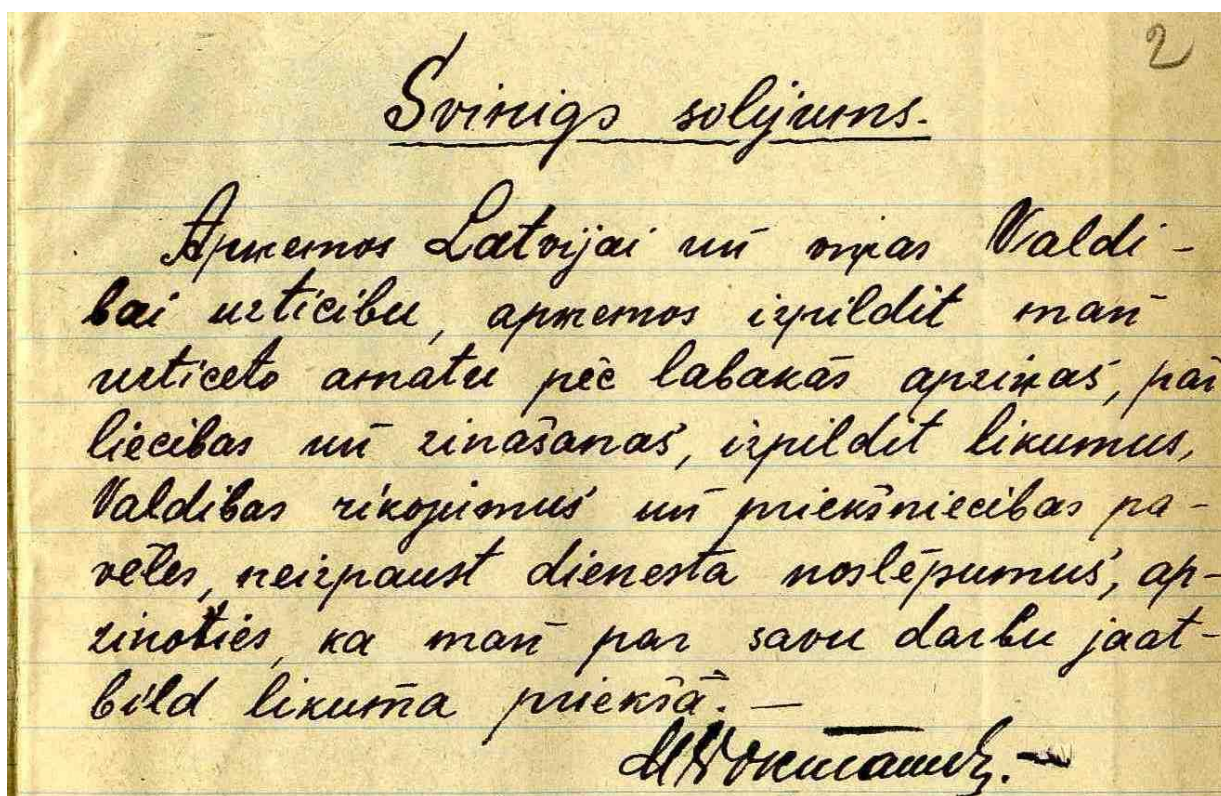 2
Svinigs solijums.
Apņemos Latvijai un viņas Valdi-
bai uzticibu, apņemos izpildit man
uzticeto amatu pēc labakās apziņas, pār
liecibas un zināšanas, izpildit likumus,
Valdibas rikojumus un priekšniecibas pa-
vēles, neizpaust dienesta noslēpumus, ap-
zinoties, ka man par savu darbu jaat-
bild likuma priekšā. —